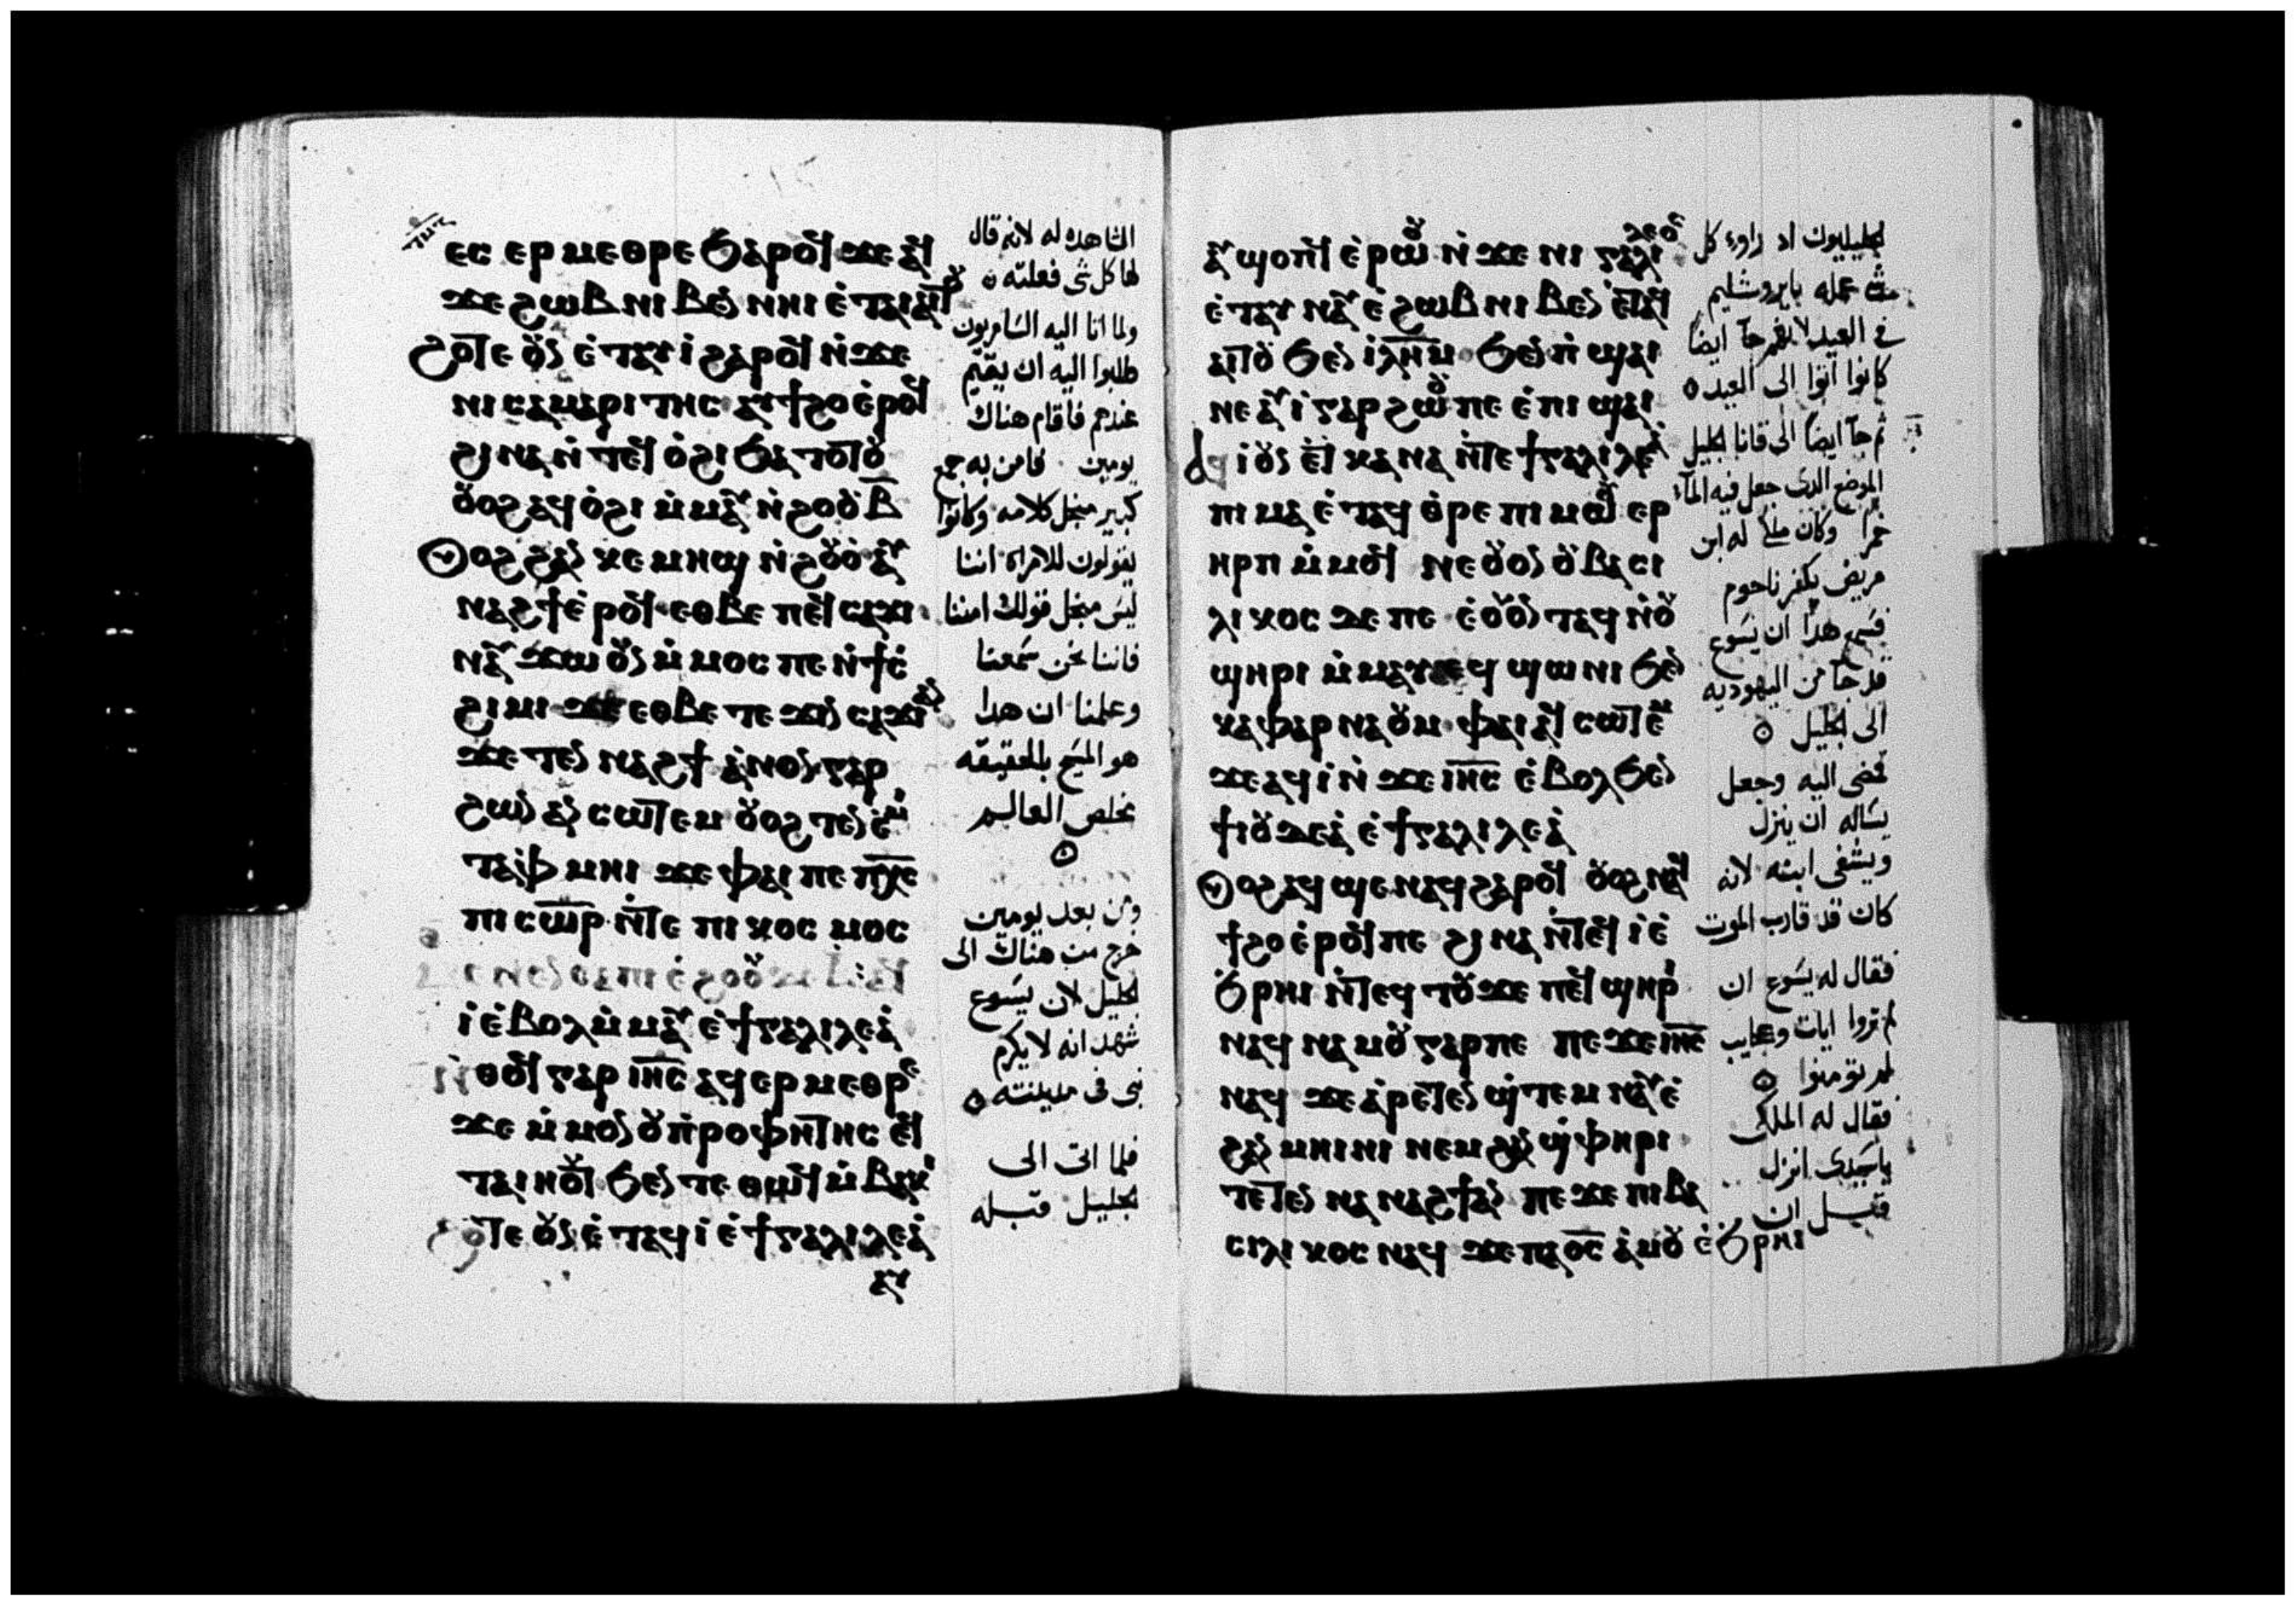 ⲉⲥ ⲉⲣ ⲙⲉⲑⲣⲉ ϧⲁⲣⲟϥ ϫⲉ ⲁϥ
ϫⲉ ϩⲱⲃ ⲛⲓⲃⲉⲛ ⲛⲏⲓ ⲉ̇ⲧⲁⲓⲁⲓⲧⲟⲩ
ϩⲟⲧⲉ ⲟⲩⲛ ⲉ̇ⲧⲁⲩⲓ̇ ϩⲁⲣⲟϥ ⲛ̇ϫⲉ
ⲛⲓⲥⲁⲙⲁⲣⲓⲧⲏⲥ ⲁⲩϯϩⲟ ⲉ̇ⲣⲟϥ
ϩⲓⲛⲁ ⲛ̇ⲧⲉϥ ⲟ̇ϩⲓ ϧⲁⲧⲟⲧⲟⲩ
ⲟⲩⲟϩ ⲁϥⲟ̇ϩⲓ ⲙ̇ⲙⲁⲩ ⲛ̇ϩⲟⲟⲩ ⲃ̅
ⲟⲩⲟϩ ϩⲁⲛ ⲕⲉ ⲙⲏϣ ⲛ̇ϩⲟⲩⲟ̇ ⲁⲩ
ⲛⲁϩϯ ⲉ̇ⲣⲟϥ ⲉⲑⲃⲉ ⲡⲉϥ ⲥⲁϫⲓ
ⲛⲁⲩ ϫⲱ ⲟⲩⲛ ⲙ̇ⲙⲟⲥ ⲡⲉ ⲛ̇ϯⲥ̇
ϩⲓⲙⲓ ϫⲉ ⲉⲑⲃⲉ ⲧⲉ ϫⲓⲛ ⲥⲁϫⲓ ⲁⲛ
ϫⲉ ⲧⲉⲛ ⲛⲁϩϯ ⲁ̇ⲛⲟⲛ ⲅⲁⲣ
ϩⲱⲛ ⲁⲛ ⲥⲱⲧⲉⲙ ⲟⲩⲟϩ ⲧⲉⲛ ⲉ̇ⲙ
ⲧⲁⲫⲙⲏⲓ ϫⲉ ⲫⲁⲓ ⲡⲉ ⲡⲭ̅ⲉ
ⲡⲓⲥⲱ̅ⲣ ⲛ̇ⲧⲉ ⲡⲓⲕⲟⲥⲙⲟⲥ
ⲓ̇ ⲉ̇ⲃⲟⲗ ⲙ̇ⲙⲁⲩ ⲉ̇ϯⲅⲁⲗⲓⲗⲉⲁ̇
ⲛ̇ⲑⲟϥ ⲅⲁⲣ ⲓⲏ̅ⲥ ⲁϥⲉⲣⲙⲉⲑⲣⲉ
ϫⲉ ⲙ̇ⲙⲟⲛ ⲟⲩⲡ̇ⲣⲟⲫⲏⲧⲏⲥ ⲉϥ
ⲧⲁⲓⲏⲟⲩⲧ ϧⲉⲛ ⲧⲉ ⲑⲱϥ ⲙ̇ⲃⲁⲕⲓ
ϩⲟⲧⲉ ⲟⲩⲛ ⲉ̇ⲧⲁϥⲓ̇ ⲉ̇ϯⲅⲁⲗⲓⲗⲉⲁ̇
ⲁⲩ
الشاهده له لانه قال
لها كل شى فعلته
ولما اتا اليه السامريون
طلبوا اليه ان يقيم
عندهم فاقام هناك
يومين فامن به جمع
كبير منجل كلامه وكانوا
يقولون للامراه اننا
ليس منجل قولك امنا
فاننا نحن سمعنا
وعلمنا ان هدا
هو المسيح بالحقيقه
مخلص العالم
ومن بعد يومين
خرج من هناك الى
الجليل لان يسوع
شهد انه لا يكرم
نبى فى مدينته
فلما اتى الى
الجليل قبله
ⲁⲩϣⲟⲡϥ ⲉ̇ⲣⲱⲟⲩ ⲛ̇ϫⲉ ⲛⲓ ⲅⲁⲗⲓⲗⲉⲟⲥ
ⲉ̇ⲧⲁⲩ ⲛⲁⲩ ⲉ̇ϩⲱⲃ ⲛⲓⲃⲉⲛ ⲉ̇ⲧⲁϥ
ⲁⲓⲧⲟⲩ ϧⲉⲛ ⲓ̇ⲗⲏ̅ⲙ ϧⲉⲛ ⲡ̇ϣⲁⲓ
ⲛⲉ ⲁⲩⲓ̇ ⲅⲁⲣ ϩⲱⲟⲩ ⲡⲉ ⲉ̇ⲡⲓ ϣⲁⲓ
ⲁϥⲓ̇ ⲟⲩⲛ ⲉ̇ⲧⲕⲁⲛⲁ ⲛ̇ⲧⲉ ϯⲅⲁⲗⲓⲗⲉⲁ̇
ⲡⲓ ⲙⲁ ⲉ̇ⲧⲁϥ ⲑ̇ⲣⲉ ⲡⲓ ⲙⲱⲟⲩ ⲉⲣ
ⲏⲣⲡ ⲙ̇ⲙⲟϥ ⲛⲉ ⲟⲩⲟⲛ ⲟⲩⲃⲁⲥⲓ
ⲗⲓⲕⲟⲥ ⲇⲉ ⲡⲉ ⲉ̇ⲟⲩⲟⲛ ⲧⲁϥ ⲛ̇ⲟⲩ
ϣⲏⲣⲓ ⲙ̇ⲙⲁⲩ ⲉϥ ϣⲱⲛⲓ ϧⲉⲛ
ⲕⲁⲫⲁⲣⲛⲁⲟⲩⲙ ⲫⲁⲓ ⲁϥ ⲥⲱⲧⲉⲙ
ϫⲉ ⲁϥⲓ̇ ⲛ̇ϫⲉ ⲓⲏ̅ⲥ ⲉ̇ⲃⲟⲗ ϧⲉⲛ
ϯⲓⲟⲩⲇⲉⲁ̇ ⲉ̇ϯⲅⲁⲗⲓⲗⲉⲁ̇
ⲟⲩⲟϩ ⲁϥϣⲉⲛⲁϥ ϩⲁⲣⲟϥ ⲟⲩⲟϩ ⲛⲁϥ
ϯϩⲟ ⲉ̇ⲣⲟϥ ⲡⲉ ϩⲓⲛⲁ ⲛ̇ⲧⲉϥ ⲓ̇ ⲉ̇
ϧⲣⲏⲓ ⲛ̇ⲧⲉϥ ⲧⲟⲩϫⲉ ⲡⲉϥ ϣⲏⲣⲓ
ⲛⲁϥ ⲛⲁ ⲙⲟⲩ ⲅⲁⲣ ⲡⲉ ⲡⲉϫⲉ ⲓⲏ̅ⲥ
ⲛⲁϥ ϫⲉ ⲁ̇ⲣⲉⲧⲉⲛ ϣ̇ⲧⲉⲙ ⲛⲁⲩ ⲉ̇
ϩⲁⲛ ⲙⲏⲓⲛⲓ ⲛⲉⲙ ϩⲁⲛ ϣ̇ⲫⲏⲣⲓ
ⲧⲉⲧⲉⲛ ⲛⲁ ⲛⲁϩϯ ⲁⲛ ⲡⲉϫⲉ ⲡⲓⲃⲁ
ⲥⲓⲗⲓⲕⲟⲥ ⲛⲁϥ ϫⲉ ⲡⲁⲟ̅ⲥ ⲁ̇ⲙⲟⲩ ⲉ̇ϧⲣⲏⲓ
الجليليون اد راوا كل
شى عمله بايروشليم
فى العيد لانهم جآ ايضا
كانوا اتوا الى العيد
ثم جآ ايضا الى قانا الجليل
الموضع الدى جعل فيه المآ
خمرا وكان ملك له ابن
مريض بكفرناحوم
فسمع هدا ان يسوع
قد جآ من اليهوديه
الى الجليل
فمضى اليه وجعل
يساله ان ينزل
ويشفى ابنه لانه
كان قد قارب الموت
فقال له يسوع ان
لم تروا ايات وعجايب
لم تومنوا
فقال له الملك
ياسيدى انزل
قبل ان